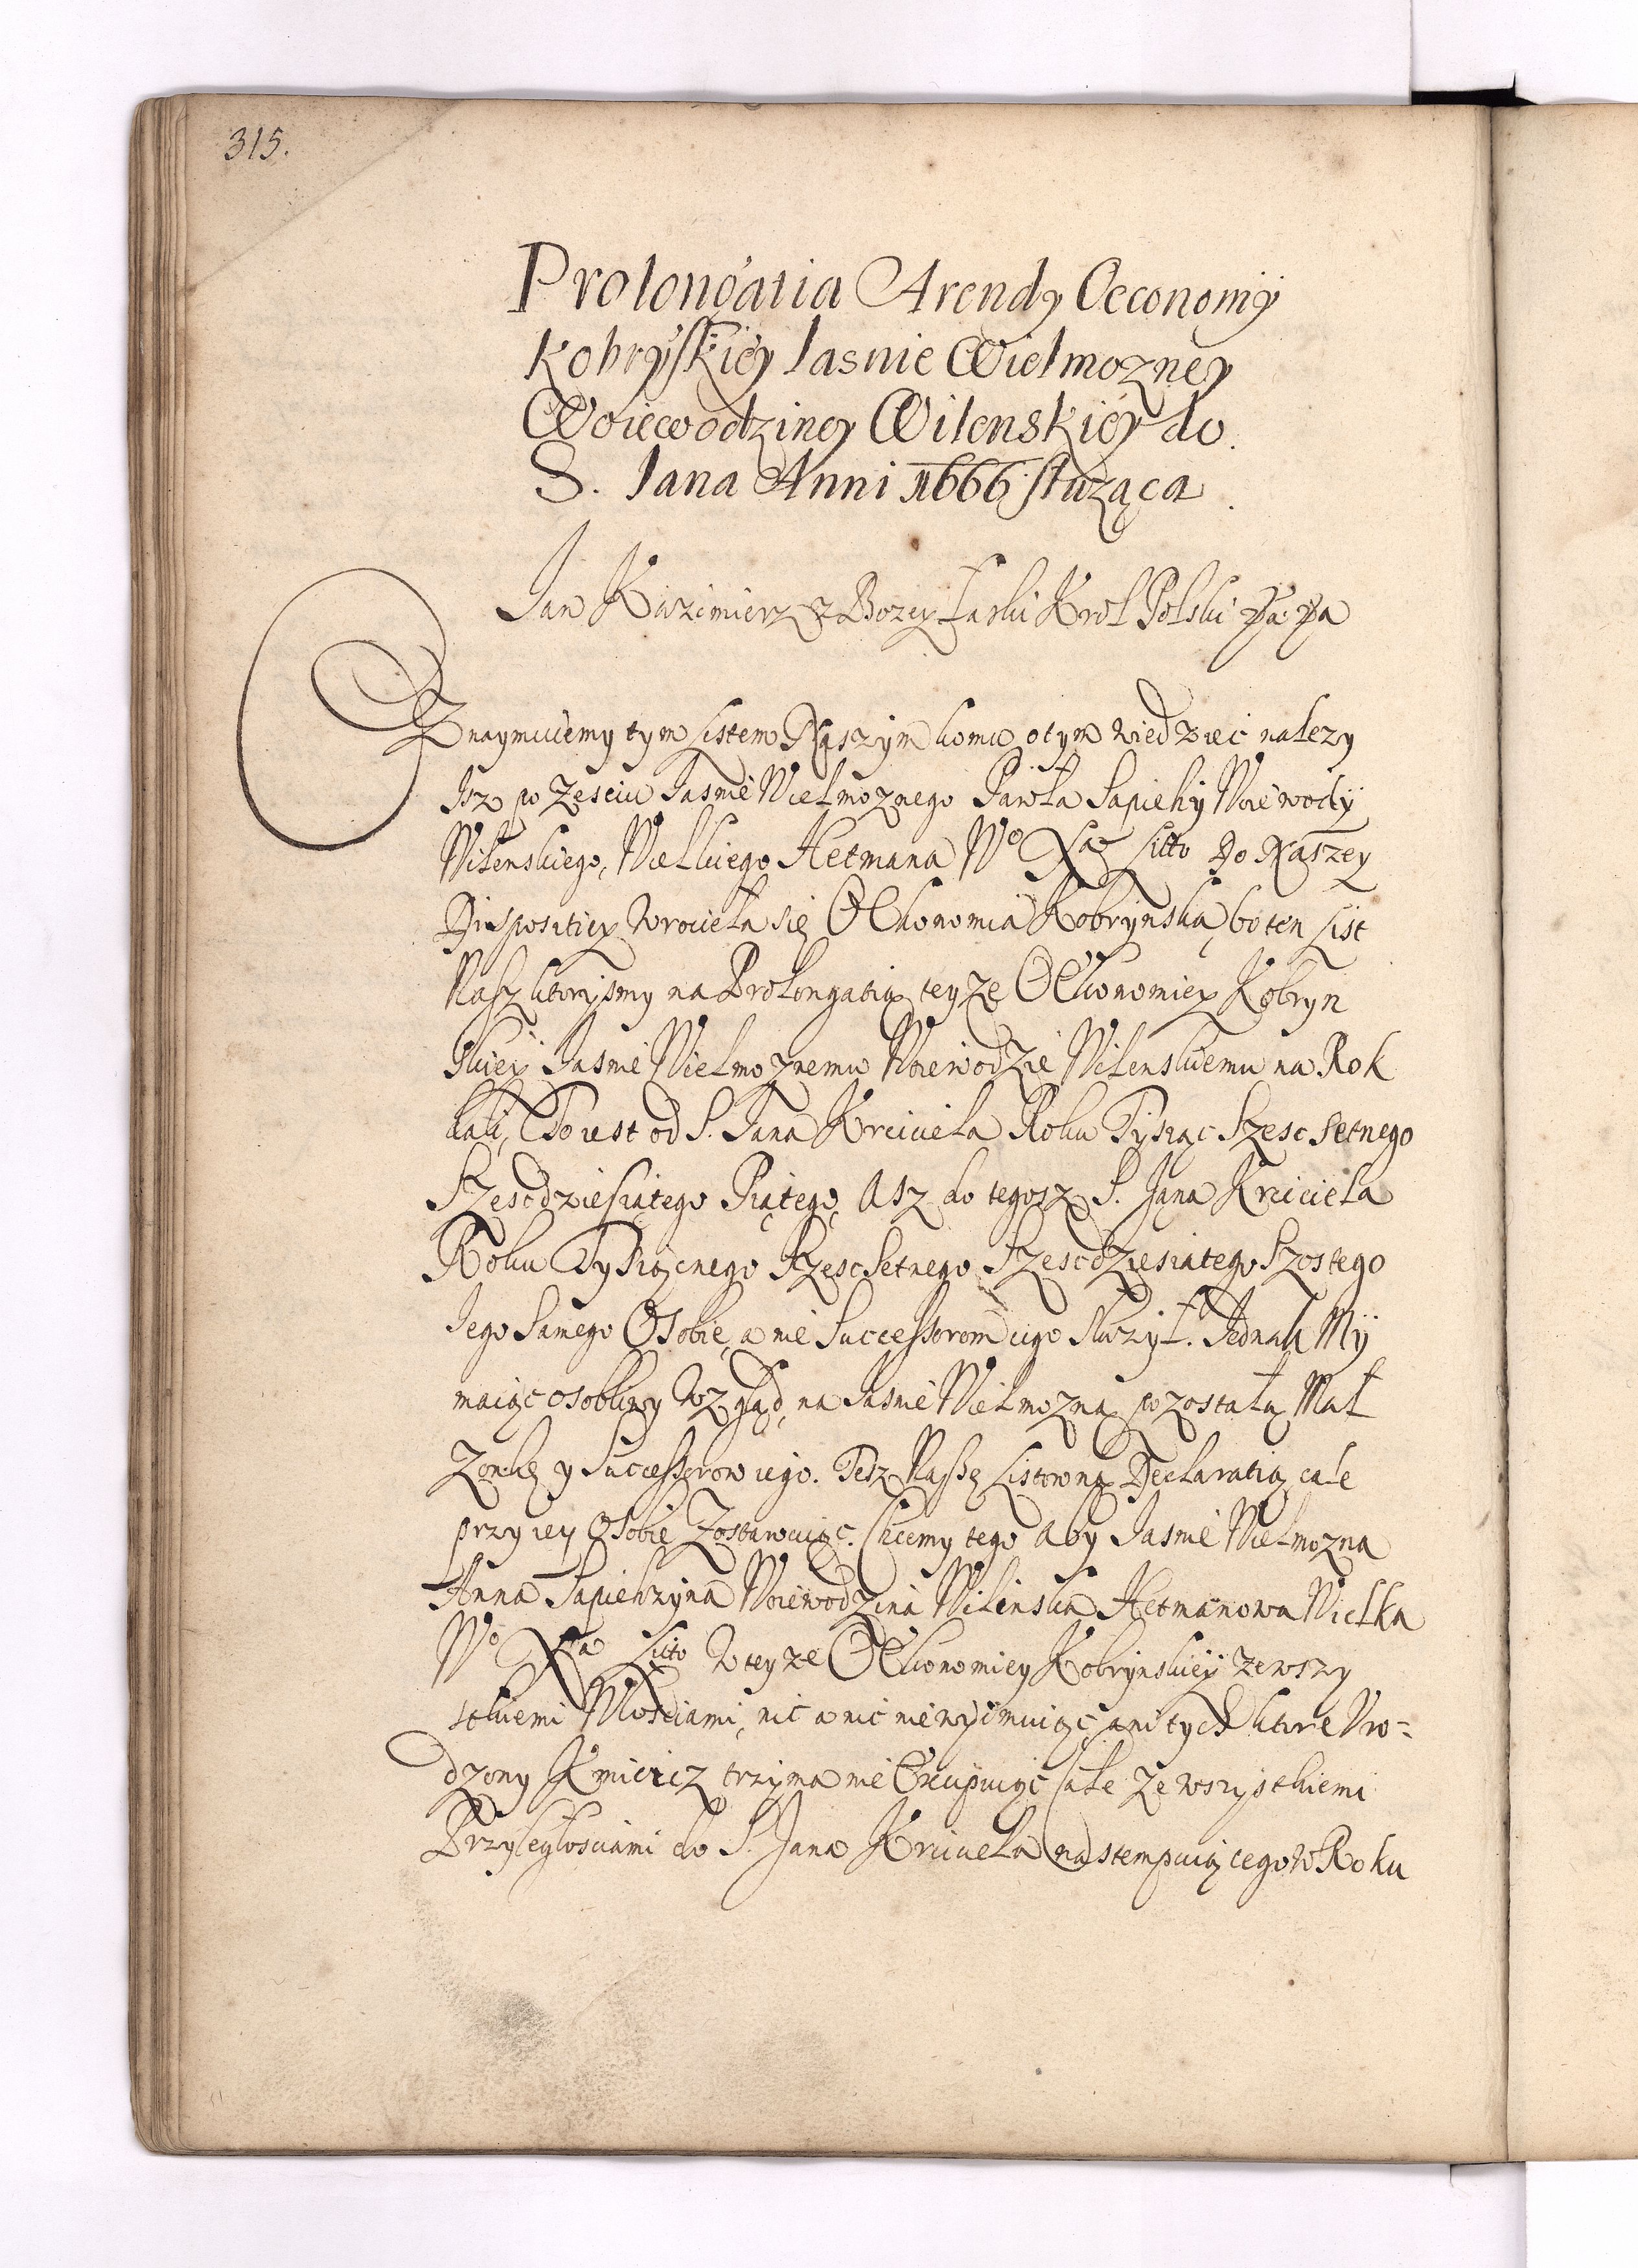 315.
Prolongatia Arendy Oeconomÿ
Kobrÿskiey Iasnie Wielmozney
Woiewodziney Wilenskiey do
S. Iana Anni 1666 służąca
Jan Kazimierz z Bozey Łaski Krol Polski
Znaymuiemy tym Listem Naszym komu o tym wiedziec nalezy
Isz po Zesciu Jasnie Wielmoznego Pawła Sapiehy Woiewodÿ
Wilenskiego, Wielkiego Hetmana Wo Xa Litto Do Naszey
Dispositiey wrociela się OEkonomia Kobrynska, bo ten List
Nasz ktorysmy na Prolongatią teyze OEkonomiey Kobryn
skiey Jasnie Wielmoznemu Woiewodzie Wilenskiemu na Rok
dali, To iest od S. Jana Krciciela Roku Tysiąc Szesc setnego
Szescdziesiątego Piątego, Asz do tegosz S. Jana Krciciela
Roku Tysiącnego Szescsetnego Szescdziesiątego Szostego
Iego Samego Osobie, a nie Successorom iego słuzył. Jednak Mÿ
maiąc osobliwy wzgląd, na Jasnie Wielmozną pozostałą Mał
Zonkę y Successorow iego. Tesz Naszę Listowną Declaratią cale
przy iey Osobie Zostawuiąc. Chcemy tego Aby Jasnie Wielmozna
Anna Sapiehzyna Woiewodzina Wilenska Hetmanowa Wielka
Wo Xa Litto w teyze OEkonomiey Kobrynskiey ze wszy
stkiemi Włosciami, nic a nic nie wyimuiąc, ani tych ktore Vro-
dzony Kmicicz trzyma nie Excypuiąc Cale Ze wszystkiemi
Przyległosciami do S. Jana Krciciela nastempuiącego w Roku